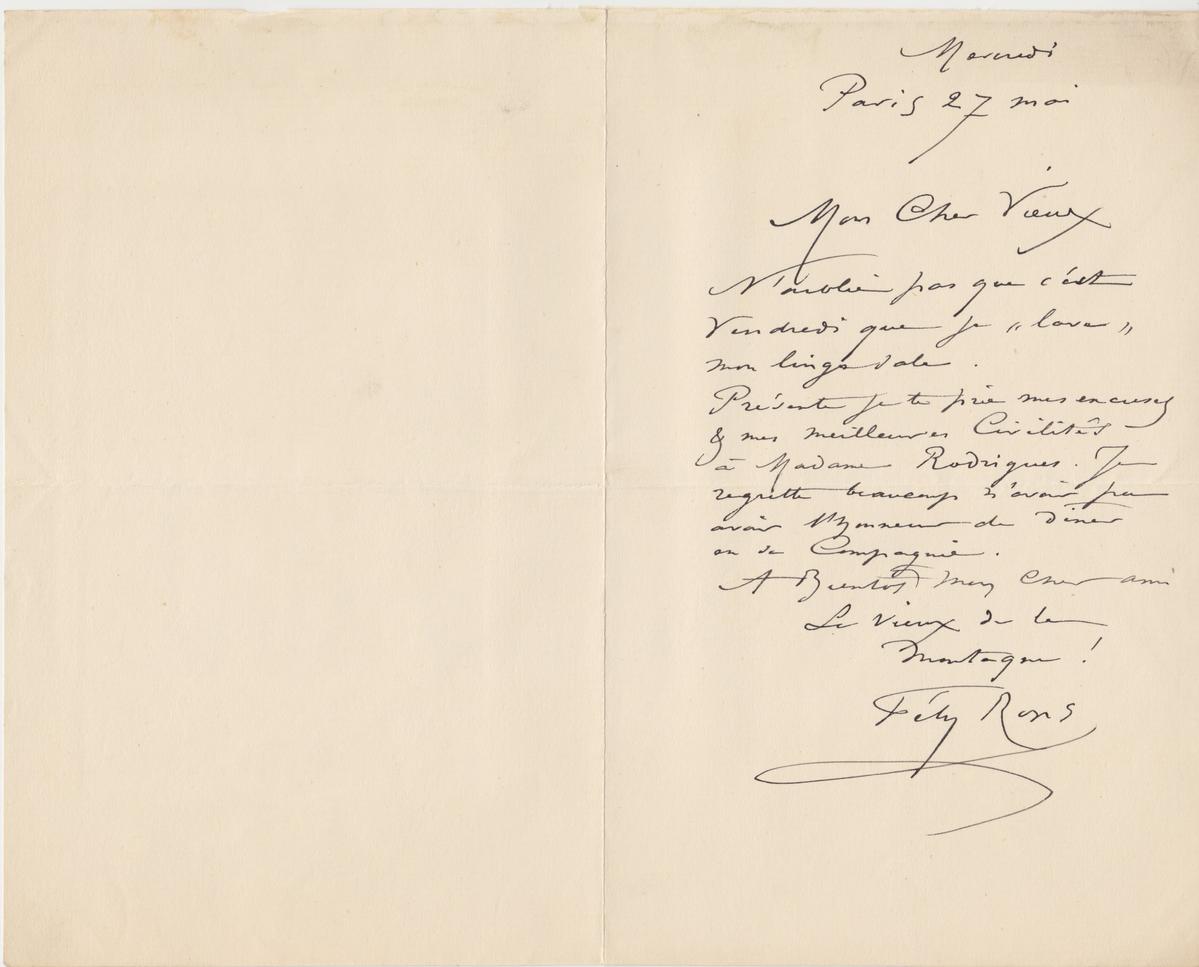 Mercredi
Paris 27 mai
Mon Cher Vieux
N'oublie pas que c'est
Vendredi que je « lave »
mon linge sale.
Présente je te prie mes excuses
& mes meilleures Civilités
à Madame Rodrigues. Je
regrette beaucoup n'avoir pu
avoir l'honneur de Dîner
en sa Compagnie.
A Bientôt mon cher ami
Le vieux de la
montagne !
Fély Rops